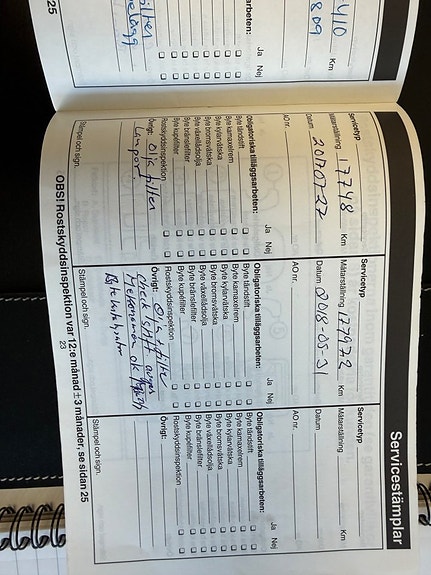 Servicestämplar
Servicetyp
Mätarställning 17748 Km
Datum 20170727
AO nr.
Obligatoriska tilläggsarbeten:
Ja Nej
Byte tändstift
Byte kamaxelrem
Byte kylarvätska
Byte bromsvätska
Byte växellådsolja
Byte bränslefilter
Byte kupéfilter
Rostskyddsinspektion
Övrigt: Olja filter
Lampor.
Stämpel och sign.
Servicetyp
Mätarställning 127972 Km
Datum 2018-05-31
AO nr.
Obligatoriska tilläggsarbeten:
Ja Nej
Byte tändstift
Byte kamaxelrem
Byte kylarvätska
Byte bromsvätska
Byte växellådsolja
Byte bränslefilter
Byte kupéfilter
Rostskyddsinspektion
Övrigt: Olja + filter
ok
Stämpel och sign.
Servicetyp
Mätarställning Km
Datum
AO nr.
Obligatoriska tilläggsarbeten:
Ja Nej
Byte tändstift
Byte kamaxelrem
Byte kylarvätska
Byte bromsvätska
Byte växellådsolja
Byte bränslefilter
Byte kupéfilter
Rostskyddsinspektion
Övrigt:
Stämpel och sign.
OBS! Rostskyddsinspektion var 12:e månad ± 3 månader, se sidan 25
23
410
Km
809
arbeten:
Ja Nej
filter
25